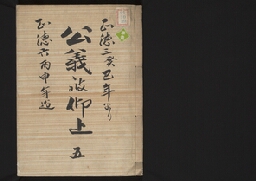 正徳三癸巳年より
公義被仰上 五
正徳六丙申年迄